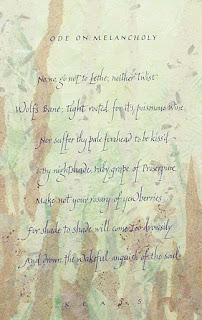 ODE ON MELANCHOLY
No, no go not to Lethe, neither twist
Wolf's Bane, tight rooted for its poisonous wine
Nor suffer thy pale forehead to be kiss'd
by nightshade, ruby grape of Proserpine
Make not your rosary of yew berries
For shade to shade will come too drowsily
And drown the wakeful anguish of the soul
KEATS